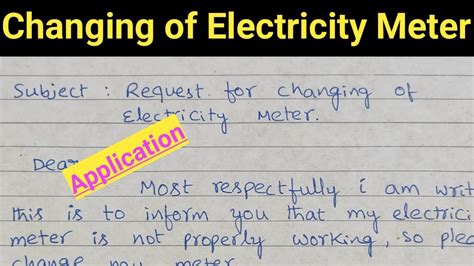 Changing of Electricity Meter
Subject : Request for changing of
Electricity Meter.
Dear
Application
Most respectfully i am writ
this is to inform you that my electrici
meter is not properly working, so plea
change my meter